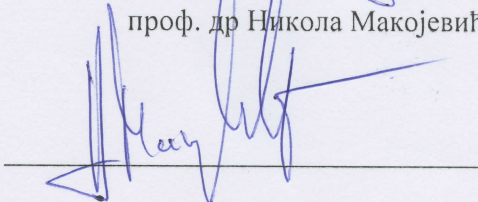 проф. др Никола Макојевић